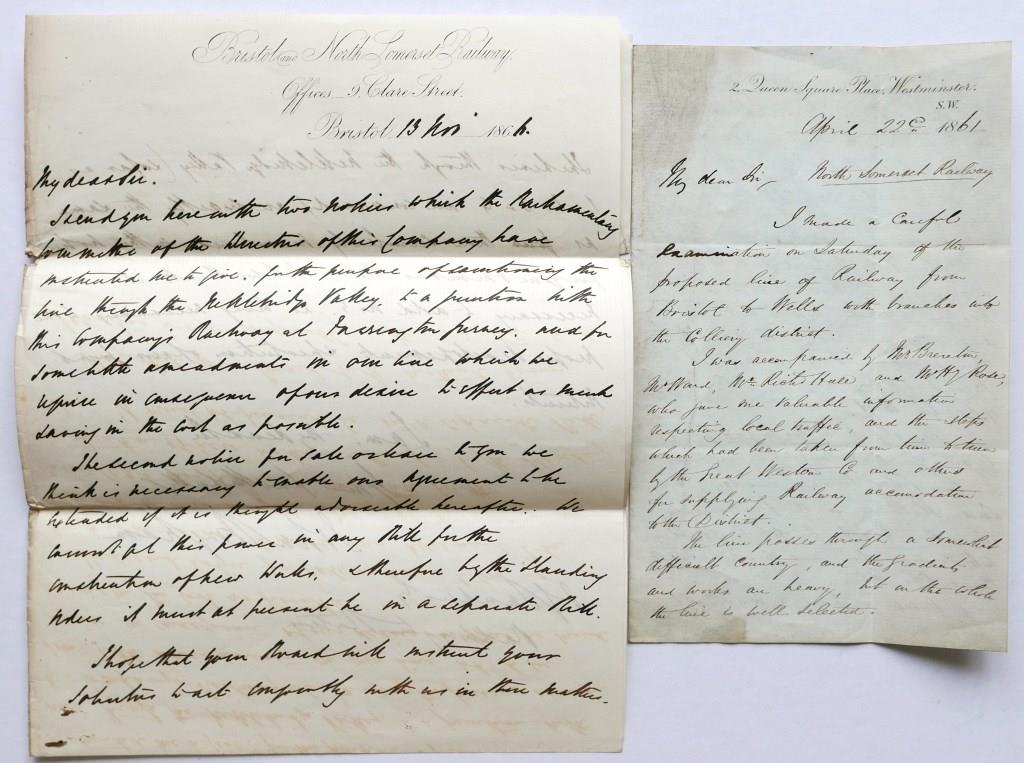 Bristol and North Somerset Railway.
Offices 9. Clare Street.
Bristol, 13 Nov 1866.
My dear Sir.
I send you herewith two notices which the Parliamentary
Committee of the Directors of this Company have
instructed me to give. for the purpose of the
line through the Nettlebridge Valley. to a junction with
this Company's Railway at Farrington Gurney. and for
some little amendments in our line which we
in consequence of our desire to effect as much
saving in the cost as possible.
The second notice for Sale or lease to you we
think is necessary to enable our Agreement to be
extended if it is thought adviseable hereafter. We
cannot get this power in any Bill for the
construction of New Works. & therefore by the Standing
orders it must at present be in a separate Bill.
I hope that your Board will instruct your
Solicitors to act conjointly with us in these matters.
2, Queen Square Place, Westminster.
S.W.
April 22nd 1861
My dear Sir, North Somerset Railway
I made a careful
examination on Saturday of the
proposed line of Railway from
Bristol to Wells with branches into
the Colliery district.
I was accompanied by Mr Brereton,
Mr Ward, Mr Richd Hall and Mr Hy Rose,
who give me valuable information
respecting local traffic, and the steps
which had been taken from time to time
by the Great Western Co and others
for supplying Railway accomodation
to the District.
The line passes through a somewhat
difficult country, and the gradients
and works are heavy, but on the whole
the line is well selected.